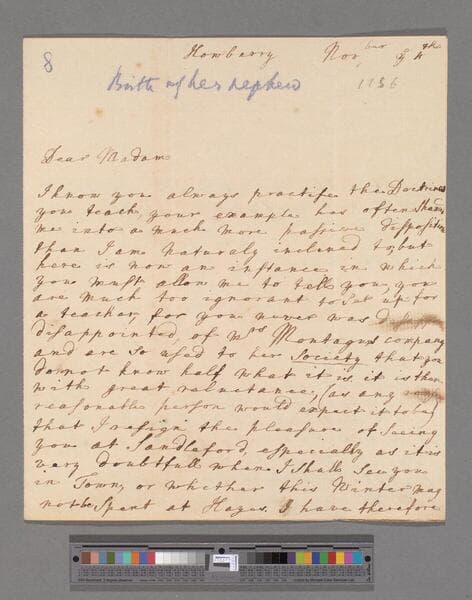 8
Nov.ber ye 4th
Birth of her nephew
1756
Dear Madam
I know you always practise the Doctrines
you teach, your example has often Shamd
me into a much more passive disposition
than I am naturaly inclined to, but
here is now an instance in which
you must allow me to tell you, you
are much too ignorant to Set up for
a teacher, for you never was
disappointed, of Mrs Montagus company
and are so used to her Society that you
do not know half what it is. it is then
with great reluctance, (as any
reasonable person would expect it to be)
that I resign the pleasure of Seeing
you at Sandleford, especially as it is
very doubtfull when I Shall See you
in Town, or whether this Winter may
not be Spent at Hayes. I have therefore